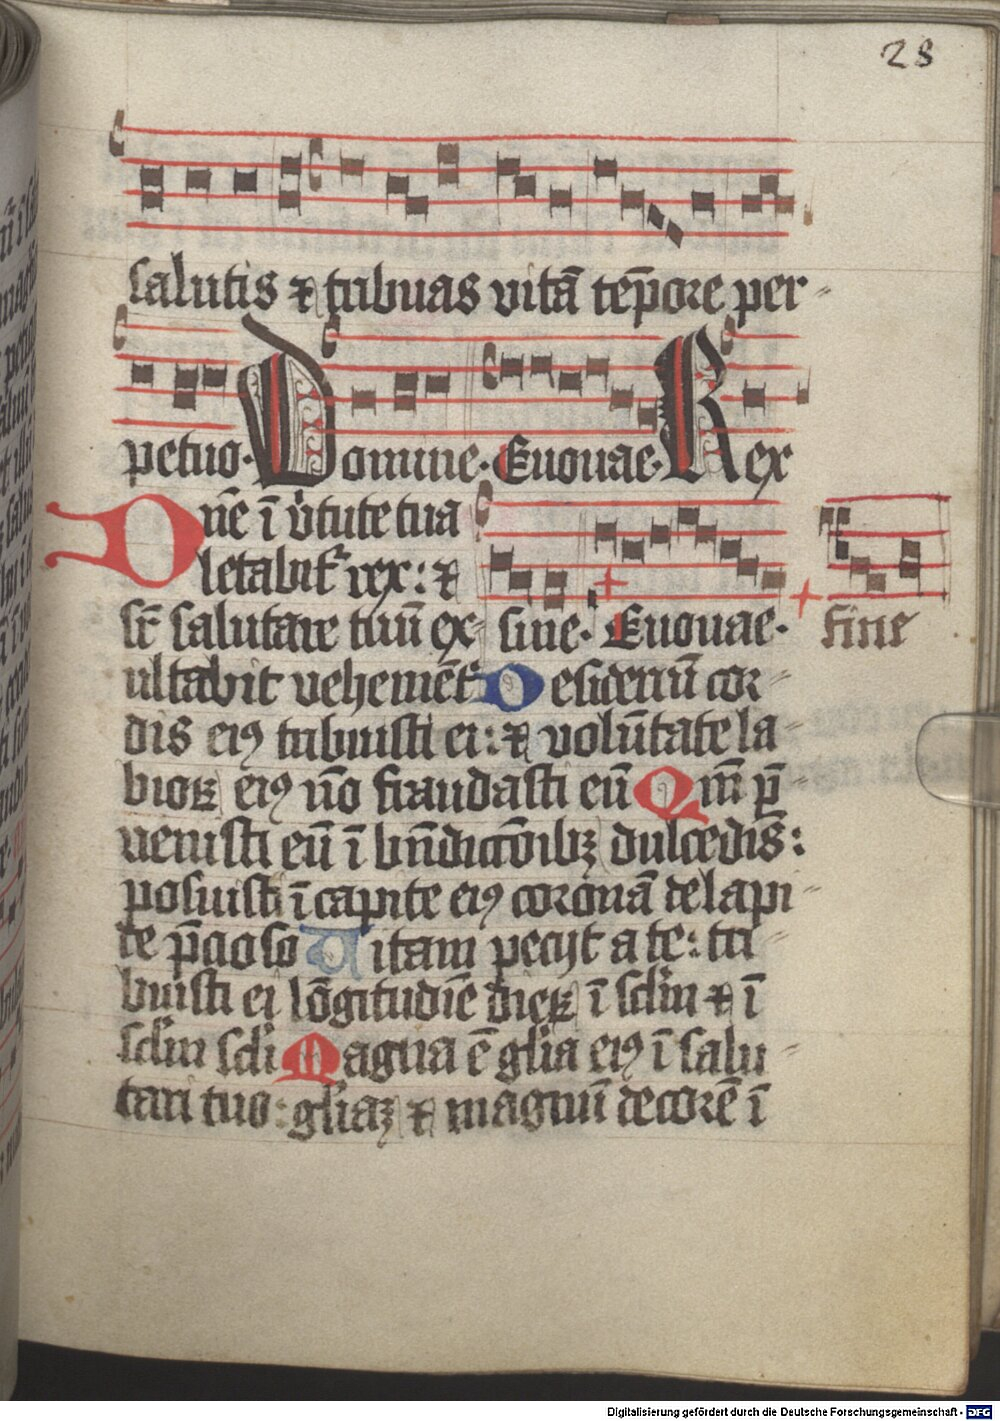 28
salutis ⁊ tribuas vitā tēpore per-
petuo. Domine. Euouae. Rex
Dn̄e ī v̇tute tua
letabit᷑ rex: ⁊
sr̄ salutare tuū ex- sine. Euouae. sine
ultabit vehemēt᷑ Desideriū cor-
dis eiꝰ tribuisti ei: ⁊ volūtate la-
bioꝝ eiꝰ nō fraudasti eū Qm̄ p̄-
uenisti eū ī bn̄dictōibꝫ dulcedīs:
posuisti ī capite eiꝰ coronā de lapi-
de p̄cioso Uitam pecijt a te: tri-
buisti ei lōgitudīe dieꝝ ī sclm̄ ⁊ ī
sclm̄ scli Magna ē gl̄ia eiꝰ ī salu-
tari tuo: gl̄iaꝫ ⁊ magnū decorē ī
Digitalisierung gefördert durch die Deutsche Forschungsgemeinschaft - DFG